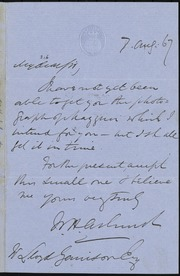 7 Aug. '67
My dear Sir,
I have not yet been
able to get you the photo-
graph of Haggerson which I
intend for you — but I shall
get it in time
For the present accept
this smaller one & believe
me Yours very truly
Wm Lloyd Garrison Esq